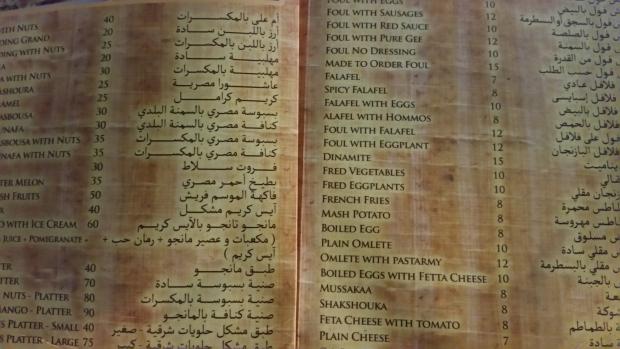 WITH NUTS 40 أم على بالمكسرات
DING GRAND 20 أرز باللبن سادة
DING WITH NUTS 30 أرز باللبن بالمكسرات
IA 20 مهلبية سادة
IA WITH NUTS 30 مهلبية بالمكسرات
ASHOURA 25 عاشورا مصرية
AMEL 25 كريم كرامل
ASBOUSA 30 بسبوسة مصري بالسمنة البلدي
UNAFA 30 كنافة مصري بالسمنة البلدي
ASBOUSA WITH NUTS 35 بسبوسة مصري بالمكسرات
UNAFA WITH NUTS 35 كنافة مصري بالمكسرات
30 فروت سلاط
TER MELON 35 بطيخ أحمر مصري
SH FRUITS 50 فاكهة الموسم فريش
40 آيس كريم مشكل
O WITH ICE CREAM 60 مانجو تانجو بالآيس كريم
JUICE + POMIGRANATE + ( مكعبات و عصير مانجو + رمان حب +
آيس كريم )
TER 40 طبق مانجو
TTER 70 صنية بسبوسة سادة
NUTS - PLATTER 80 صنية بسبوسة بالمكسرات
MANGO - PLATTER 90 صنية كنافة بالمانجو
TS PLATTER - SMALL 40 طبق مشكل حلويات شرقية - صغير
TS PLATTER - LARGE 75 طبق مشكل حلويات شرقية - كبير
FOUL WITH EGGS 10 فول بالبيض
FOUL WITH SAUSAGES 12 فول بالسجق أو السطرمة
FOUL WITH RED SAUCE 10 فول بالصلصة
FOUL WITH PURE GEF 12 فول بالسمنة
FOUL NO DRESSING 10 فول من القدرة
MADE TO ORDER FOUL 15 فول حسب الطلب
FALAFEL 7 فلافل عادي
SPICY FALAFEL 8 فلافل إسبايسى
FALAFEL WITH EGGS 10 فلافل بالبيض
ALAFEL WITH HOMMOS 8 فلافل بالحمص
FOUL WITH FALAFEL 12 فول على فلافل
FOUL WITH EGGPLANT 12 البازنجان
DINAMITE 15
FRED VEGETABLES 10
FRED EGGPLANTS 10 مقلي
FRENCH FRIES 10 محمرة
MASH POTATO 8 مهروسة
BOILED EGG 8 مسلوق
PLAIN OMLETE 8 مقلي سادة
OMLETE WITH PASTARMY 12 مقلي بالبسطرمة
BOILED EGGS WITH FETTA CHEESE 10 بالجبنة
MUSSAKAA 8
SHAKSHOUKA 8
FETA CHEESE WITH TOMATO 8 بالطماطم
PLAIN CHEESE 7 سادة